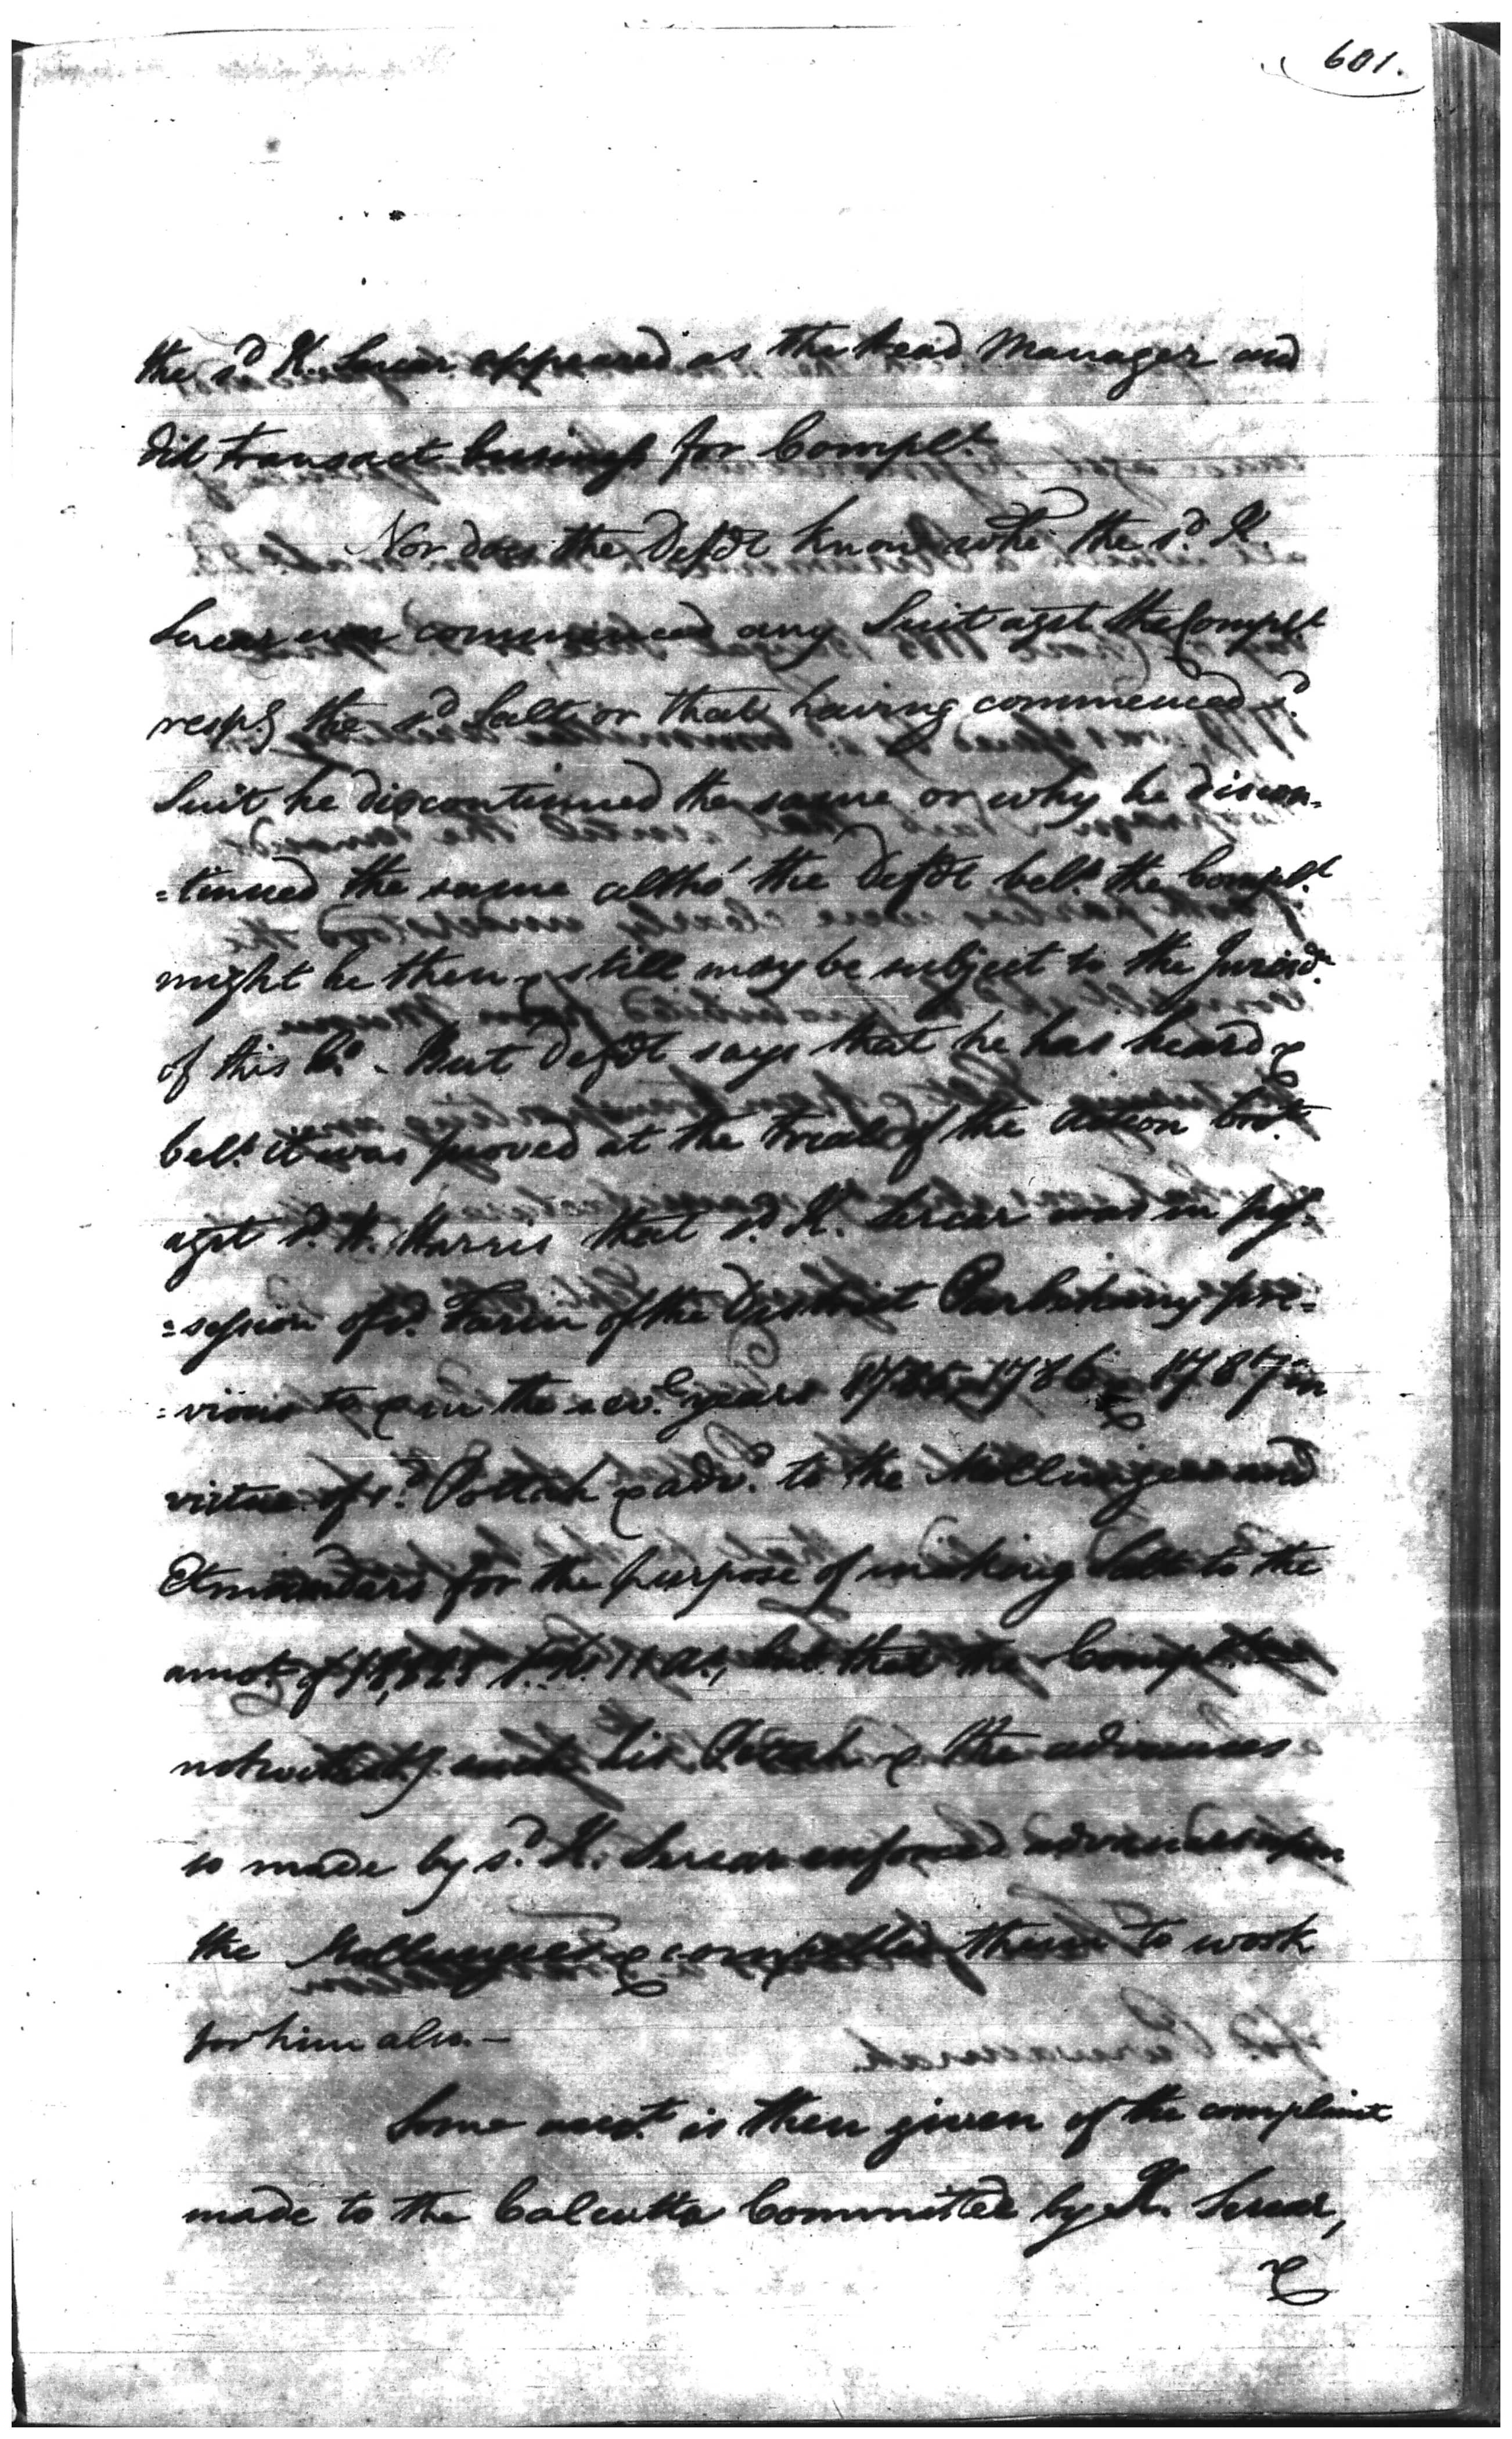 601.
the sd. K. Sircar appeared as the head Manager and
did transact business for Complt.
Nor does the Defdt know whr. the sd. K.
Sircar ever commenced any Suit agst the Complt.
respg the sd Salt or that having commenced sd.
Suit he discontinued the same or why he discon=
=tinued the same altho' the Defdt bels. the Complt.
might be then & still may be subject to the Jurisdn.
of this Ct. - But Defdt says that he has heard &
bels. it was proved at the trial of the Action brot.
agst sd. H. Harris that sd. K. Sircar was in pos=
=session of sd. Farm of the District previous=
=vious to & in the sevl. years 1785, 1786 & 1787 in
virtue of sd. Pottah & advd. to the Mollungees and
for the purpose of making Salt to the
amot. of but that the Complt.
notwithstg such his Pottah & the advances
so made by sd. K. Sircar enforced advances upon
the Mollungees & compelled them to work
for him also. -
Some acct. is then given of the complaint
made to the Calcutta Committee by K. Sircar,
&